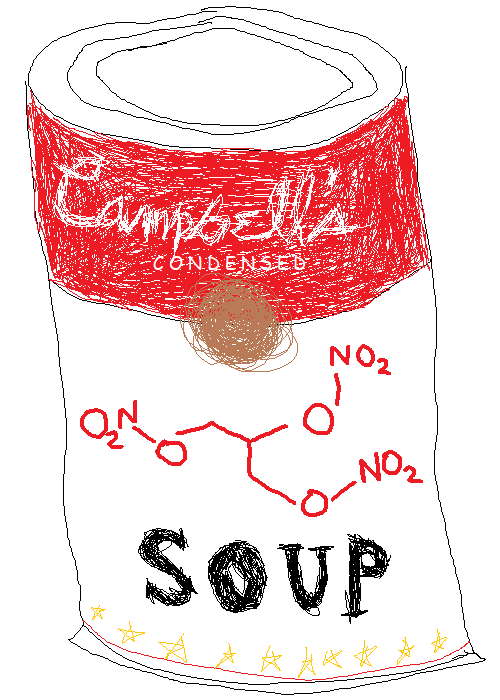 Campbell's
CONDENSED
NO2
O2N O O
O NO2
SOUP